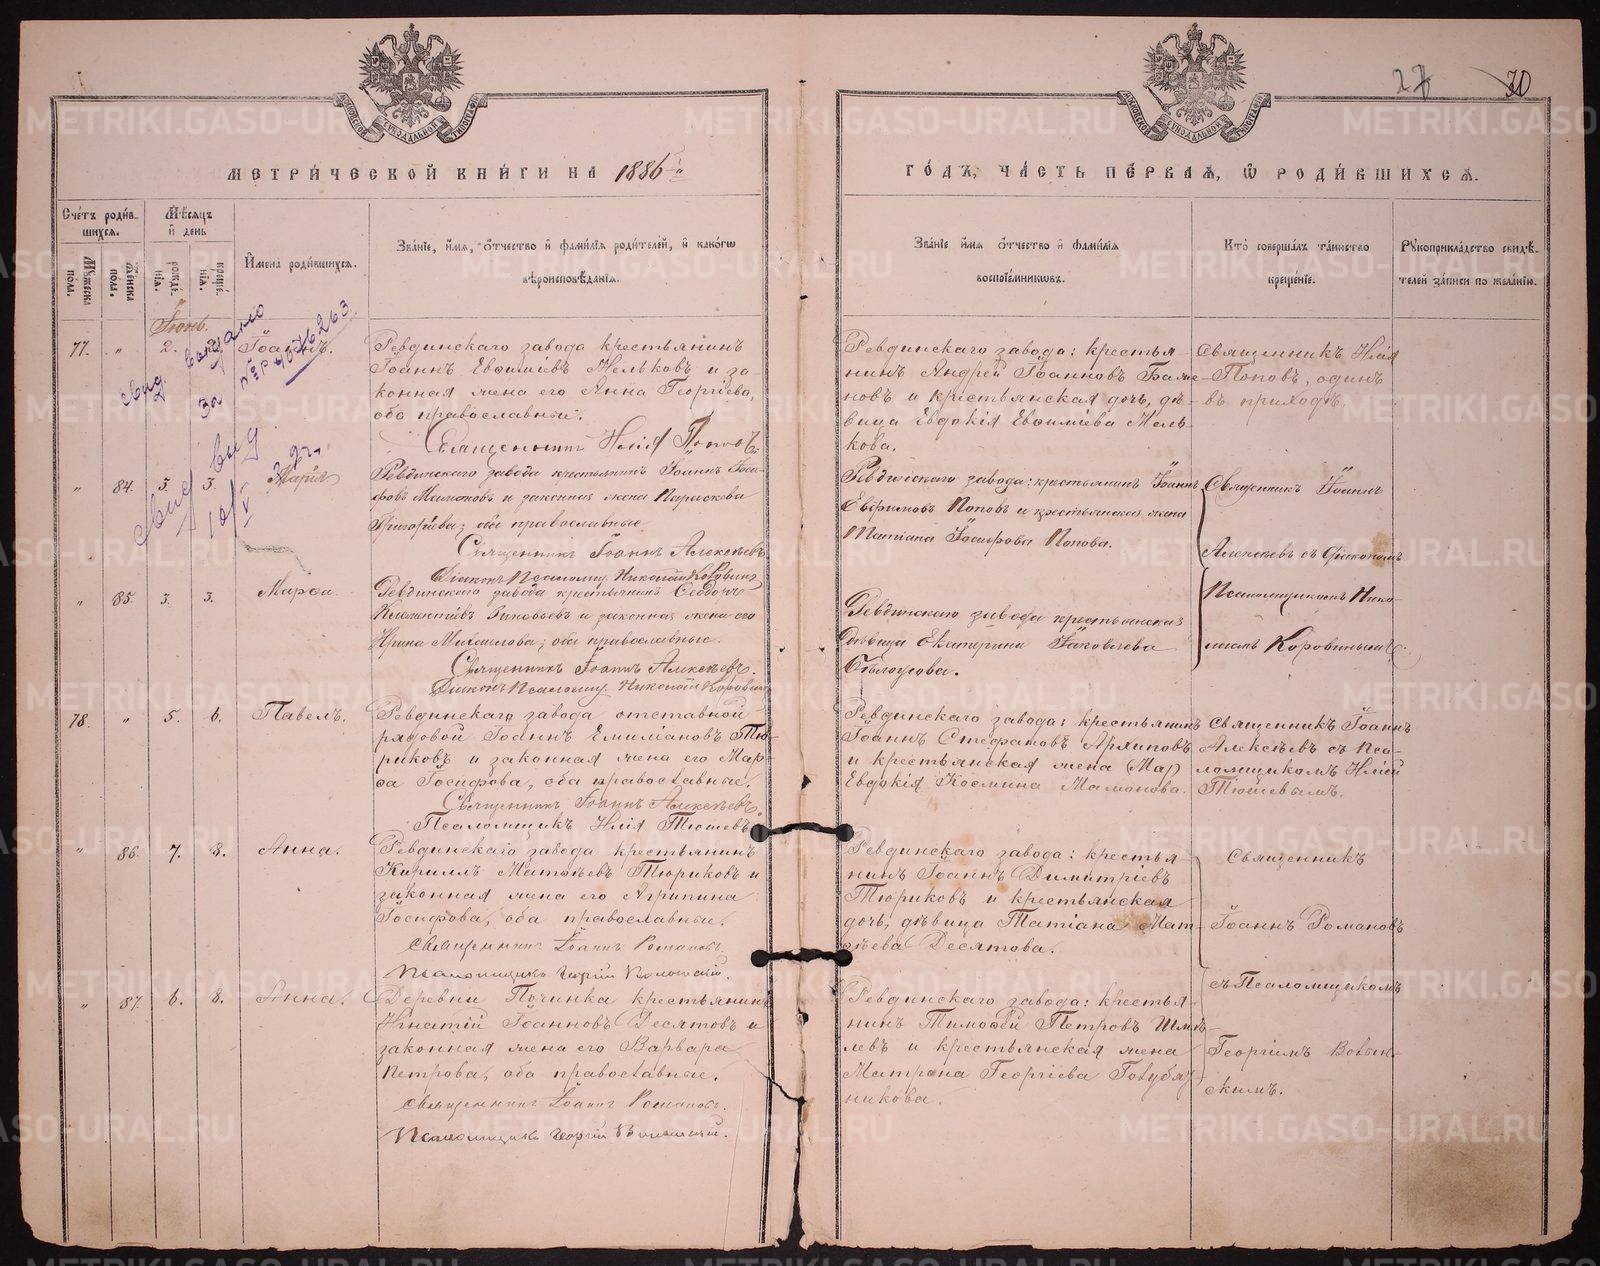 27
30
МОСКОВСКОЙ СѴНОДАЛЬНОЙ ТИПОГРАФІИ
МОСКОВСКОЙ СѴНОДАЛЬНОЙ ТИПОГРАФІИ
МЕТРИ́ЧЕСКОЙ КНИ́ГИ НА 1886
ГО́ДЪ, ЧА́СТЬ ПЕ́РВАѦ, Ѡ РОДИ́ВШИХСѦ.
Сче́тъ роди́в-
шихся.
Му́жеска пола.
Же́нска по́ла.
Мѣ́сяцъ
и҆ день
рожде́-
нїѧ.
креще́-
нїѧ.
И҆мена̀ роди́вшихсѧ.
Зва́нїе, и҆́мѧ, ѻ҆́тчество и҆ фами́лїѧ роди́телей, и҆ како́гѡ
вѣроисповѣ́данїѧ.
Зва́нїе и҆́мѧ ѻ҆́тчество и҆ фами́лїѧ
воспрїе́мниковъ.
Кто̀ соверша́лъ та́инство
креще́нїѧ.
Рꙋкоприкла́дство свидѣ́-
телей за́писи по жела́нїю.
Іюнь.
77. " 2. Іоаннъ.
Ревдинскаго завода крестьянинъ
Іоаннъ Евѳиміевъ Мельковъ и за-
конная жена его Анна Георгіева,
оба православные.
Священникъ Илія Поповъ
Ревдинскаго завода: крестья-
нинъ Андрей Іоанновъ
новъ и крестьянская дочь, дѣ-
вица Евдокія Евѳиміева Мель-
кова.
Священникъ Илія
Поповъ, одинъ
въ приходѣ.
" 84. 3. 3. Марія
Ревдинскаго завода крестьянинъ Іоаннъ Іоси-
фовъ Мамоновъ и законная жена Параскева
Григорьева; оба православные
Священникъ Іоаннъ Алексѣевъ
Діаконъ Псаломщ. Николай Коровинъ
Ревдинскаго завода: крестьянинъ Іоаннъ
Евфимовъ Поповъ и крестьянская жена
Татіана Іосифова Попова.
Священникъ Іоаннъ
Алексѣевъ съ діакономъ
" 85. 3. 3. Марѳа
Ревдинскаго завода крестьянинъ Ѳеодоръ
Климентіевъ Зиновьевъ и законная жена его
Ирина Михаилова; оба православные.
Священникъ Іоаннъ Алексѣевъ.
Діаконъ Псаломщ. Николай Коровинъ
Ревдинскаго завода крестьянская
дѣвица Екатерина Іаковлева
Бѣлоусова.
Псаломщикомъ Нико-
лаемъ Коровинымъ.
78. " 5. 6. Павелъ.
Ревдинскаго завода отставной
рядовой Іоаннъ Емиліановъ Тю-
риковъ и законная жена его Мар-
ѳа Іосифова, оба православные.
Священникъ Іоаннъ Алексѣевъ
Псаломщикъ Илія Тюшевъ
Ревдинскаго завода: крестьянинъ
Іоаннъ Стефановъ Архиповъ
и крестьянская жена (Мар)
Евдокія Космина Мамонова.
Священникъ Іоаннъ
Алексѣевъ съ пса-
ломщикомъ Иліей
Тюшевымъ.
" 86. 7. 8. Анна.
Ревдинскаго завода крестьянинъ
Кириллъ Матѳѣевъ Тюриковъ и
законная жена его Агрипина
Іосифова, оба православные.
Священникъ Іоаннъ Романовъ
Псаломщикъ Георгій
Ревдинскаго завода: крестья-
нинъ Іоаннъ Димитріевъ
Тюриковъ и крестьянская
дочь, дѣвица Татіана Мат-
ѳѣева Десятова.
Священникъ
Іоаннъ Романовъ
съ Псаломщикомъ
" 87. 6. 8. Анна.
Деревни Починка крестьянинъ
Игнатій Іоанновъ Десятовъ и
законная жена его Варвара
Петрова, оба православные.
Священникъ Іоаннъ Романовъ.
Псаломщикъ Георгій
Ревдинскаго завода: крестья-
нинъ Тимоѳей Петровъ Шме-
левъ и крестьянская жена
Матрона Георгіева Голубят-
никова.
Георгіемъ
скимъ.